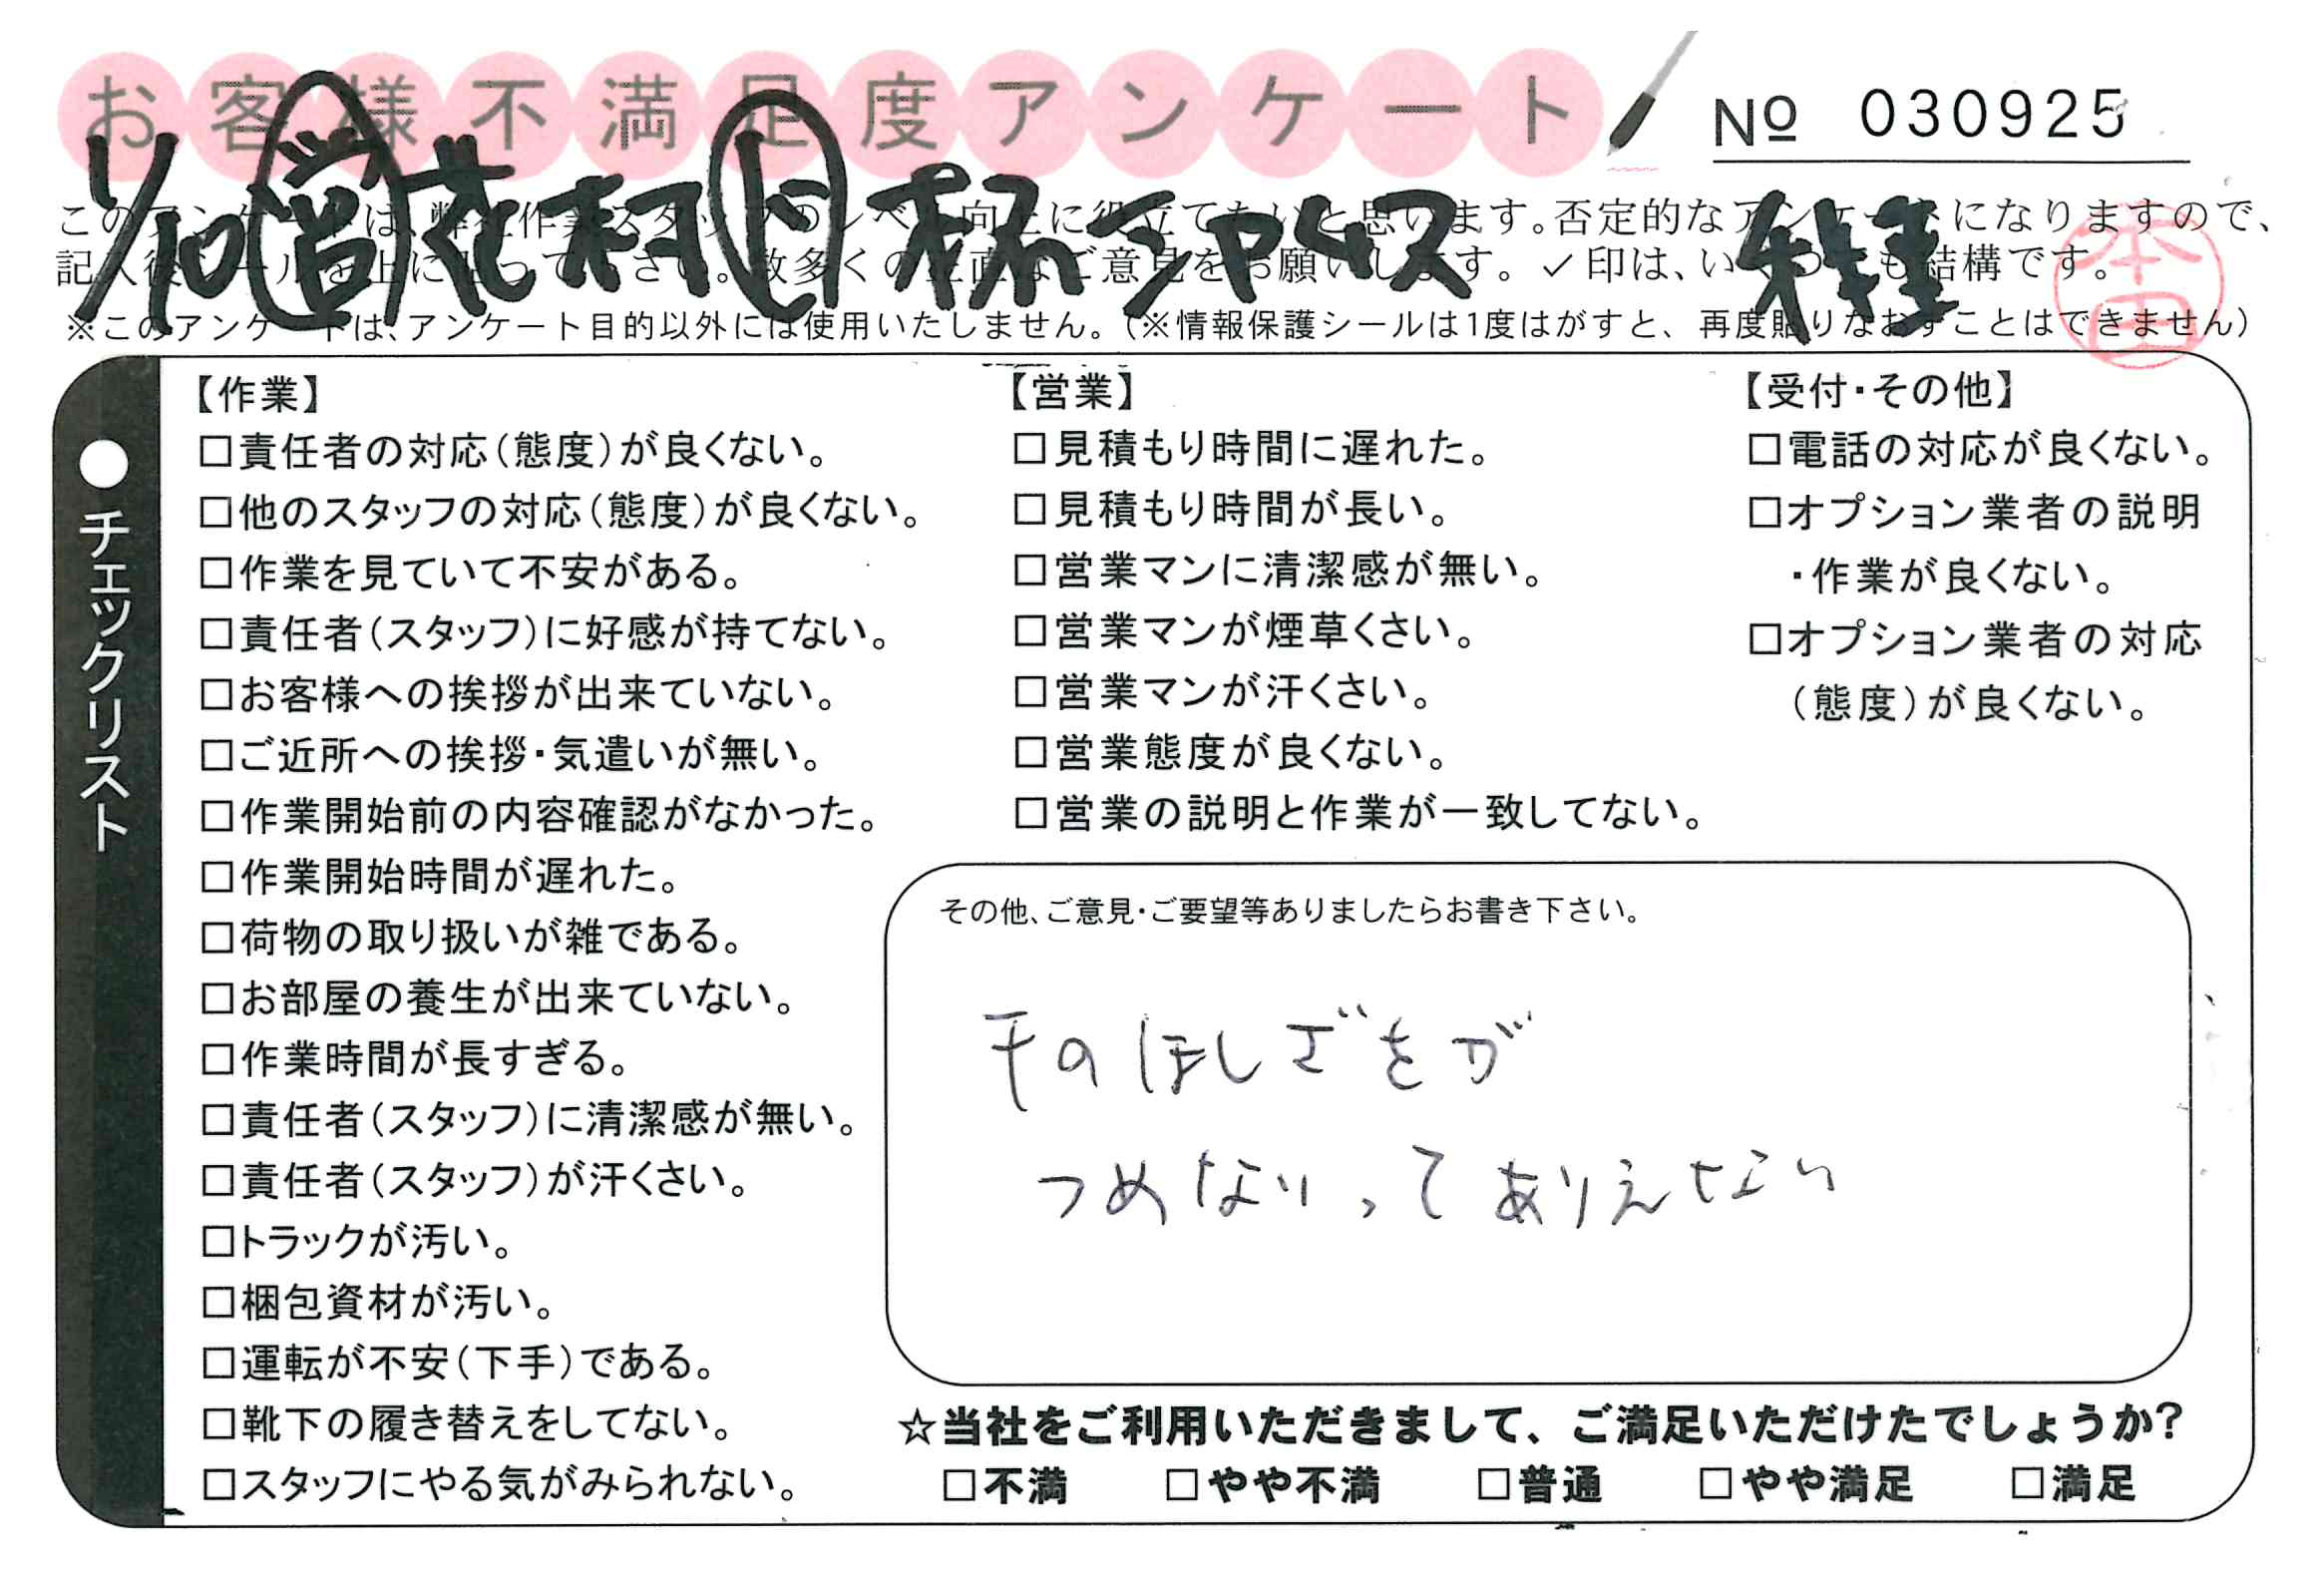 お客様不満足度アンケート
№ 030925
1/10 営 花村 ド 楊 シャルマ 種
本田
このアンケートは、弊社作業スタッフのレベル向上に役立てたいと思います。否定的なアンケートになりますので、
記入後シールを上に貼って下さい。数多くの正直なご意見をお願いします。✓印は、いくつでも結構です。
※このアンケートは、アンケート目的以外には使用いたしません。(※情報保護シールは1度はがすと、再度貼りなおすことはできません)
●チェックリスト
【作業】
□責任者の対応(態度)が良くない。
□他のスタッフの対応(態度)が良くない。
□作業を見ていて不安がある。
□責任者(スタッフ)に好感が持てない。
□お客様への挨拶が出来ていない。
□ご近所への挨拶・気遣いが無い。
□作業開始前の内容確認がなかった。
□作業開始時間が遅れた。
□荷物の取り扱いが雑である。
□お部屋の養生が出来ていない。
□作業時間が長すぎる。
□責任者(スタッフ)に清潔感が無い。
□責任者(スタッフ)が汗くさい。
□トラックが汚い。
□梱包資材が汚い。
□運転が不安(下手)である。
□靴下の履き替えをしてない。
□スタッフにやる気がみられない。
【営業】
□見積もり時間に遅れた。
□見積もり時間が長い。
□営業マンに清潔感が無い。
□営業マンが煙草くさい。
□営業マンが汗くさい。
□営業態度が良くない。
□営業の説明と作業が一致してない。
【受付・その他】
□電話の対応が良くない。
□オプション業者の説明
・作業が良くない。
□オプション業者の対応
(態度)が良くない。
その他、ご意見・ご要望等ありましたらお書き下さい。
干のほしざをが
つめないってありえない
☆当社をご利用いただきまして、ご満足いただけたでしょうか?
□不満 □やや不満 □普通 □やや満足 □満足